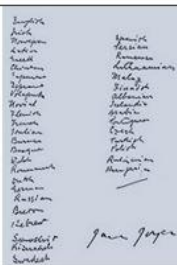 English
Irish
Norwegian
Latin
Greek
Christian
Japanese
Esperanto
Volapuk
Novial
Flemish
French
Italian
Burman
Basque
Welsh
Romansch
Dutch
German
Russian
Breton
Hebrew
Sanskrit
Swedish
Spanish
Persian
Rumanian
Lithuanian
Malay
Finnish
Albanian
Icelandic
Arabic
Portuguese
Czech
Turkish
Polish
Ruthenian
Hungarian
James Joyce